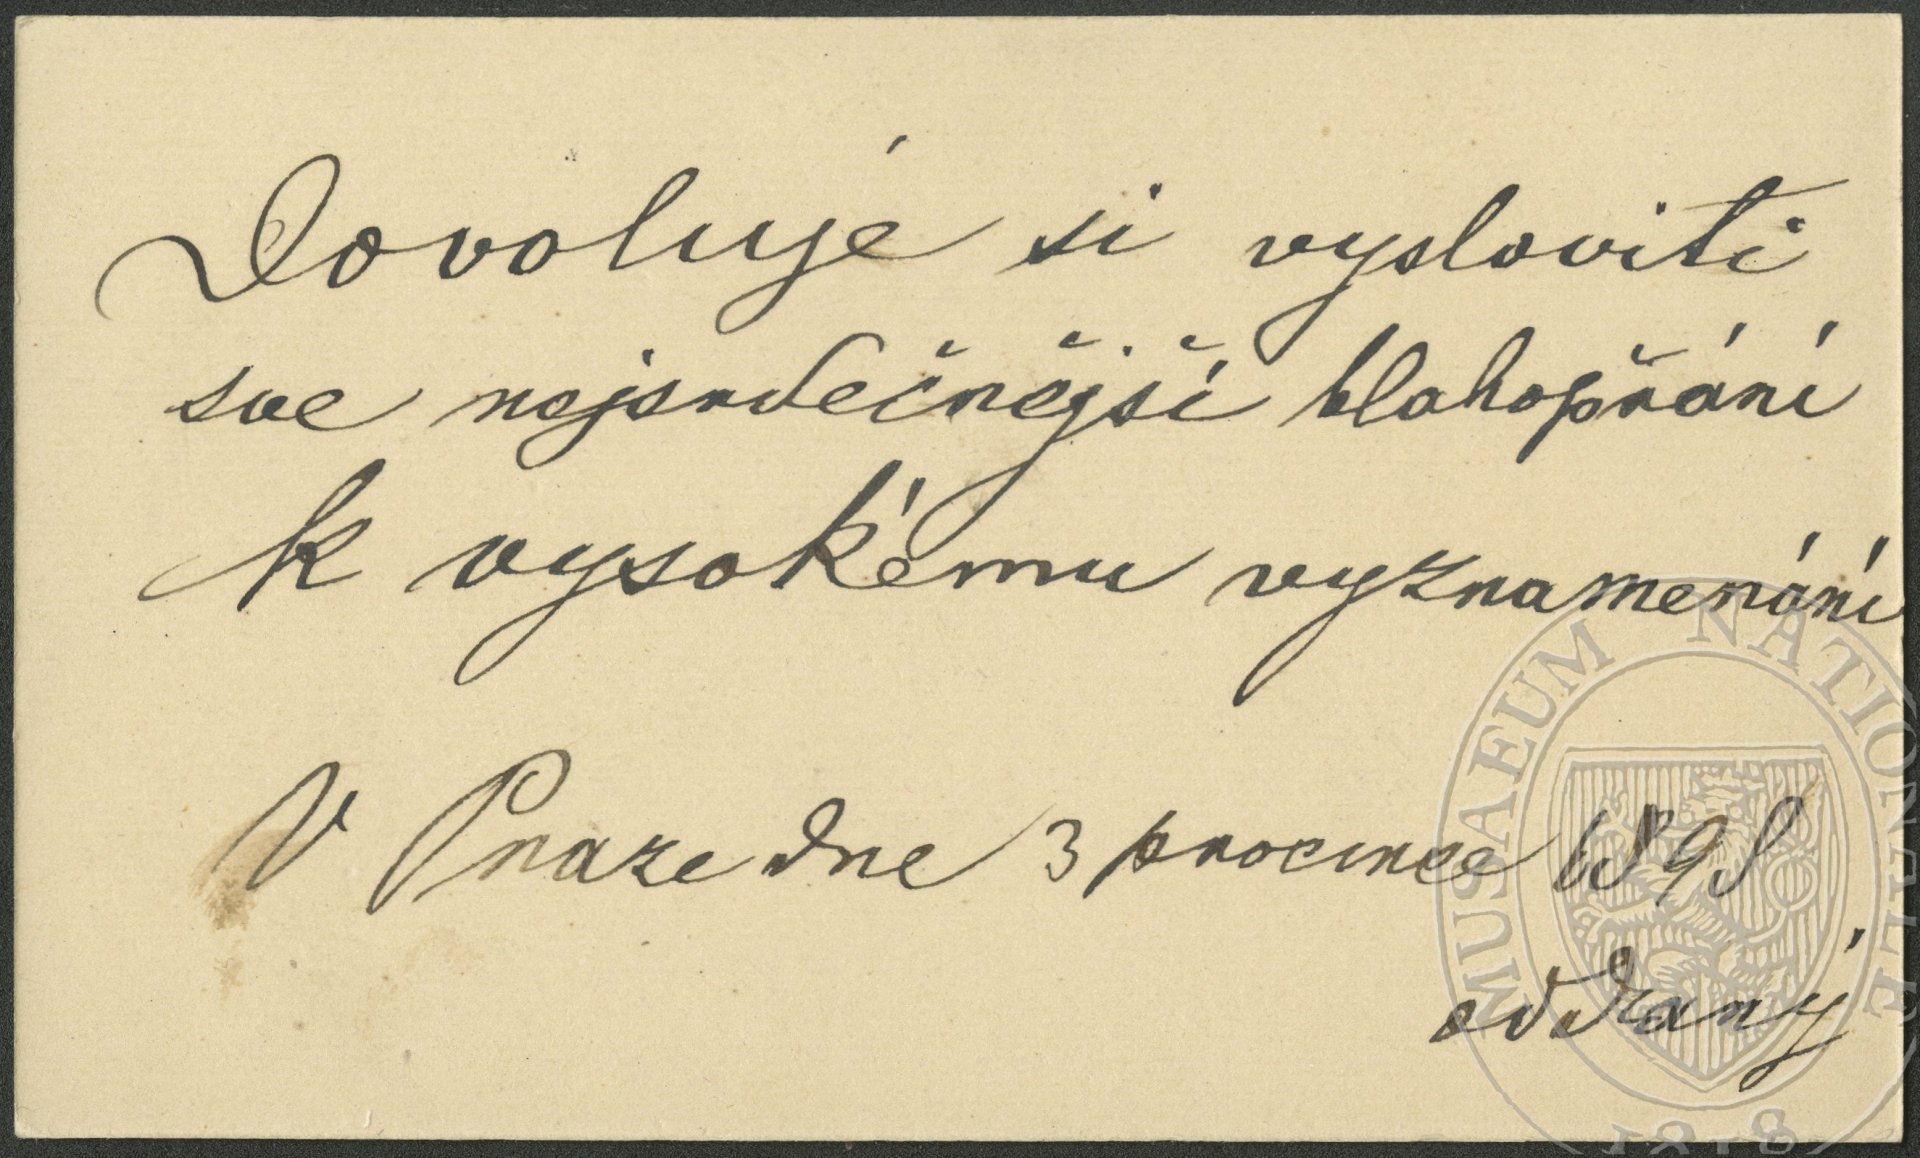 Dovoluje si vysloviti
své nejsrdečnější blahopřání
k vysokému vyznamenání
V Praze dne 3 prosince 1898
oddaný
MUSAEUM NATIONALE
1818